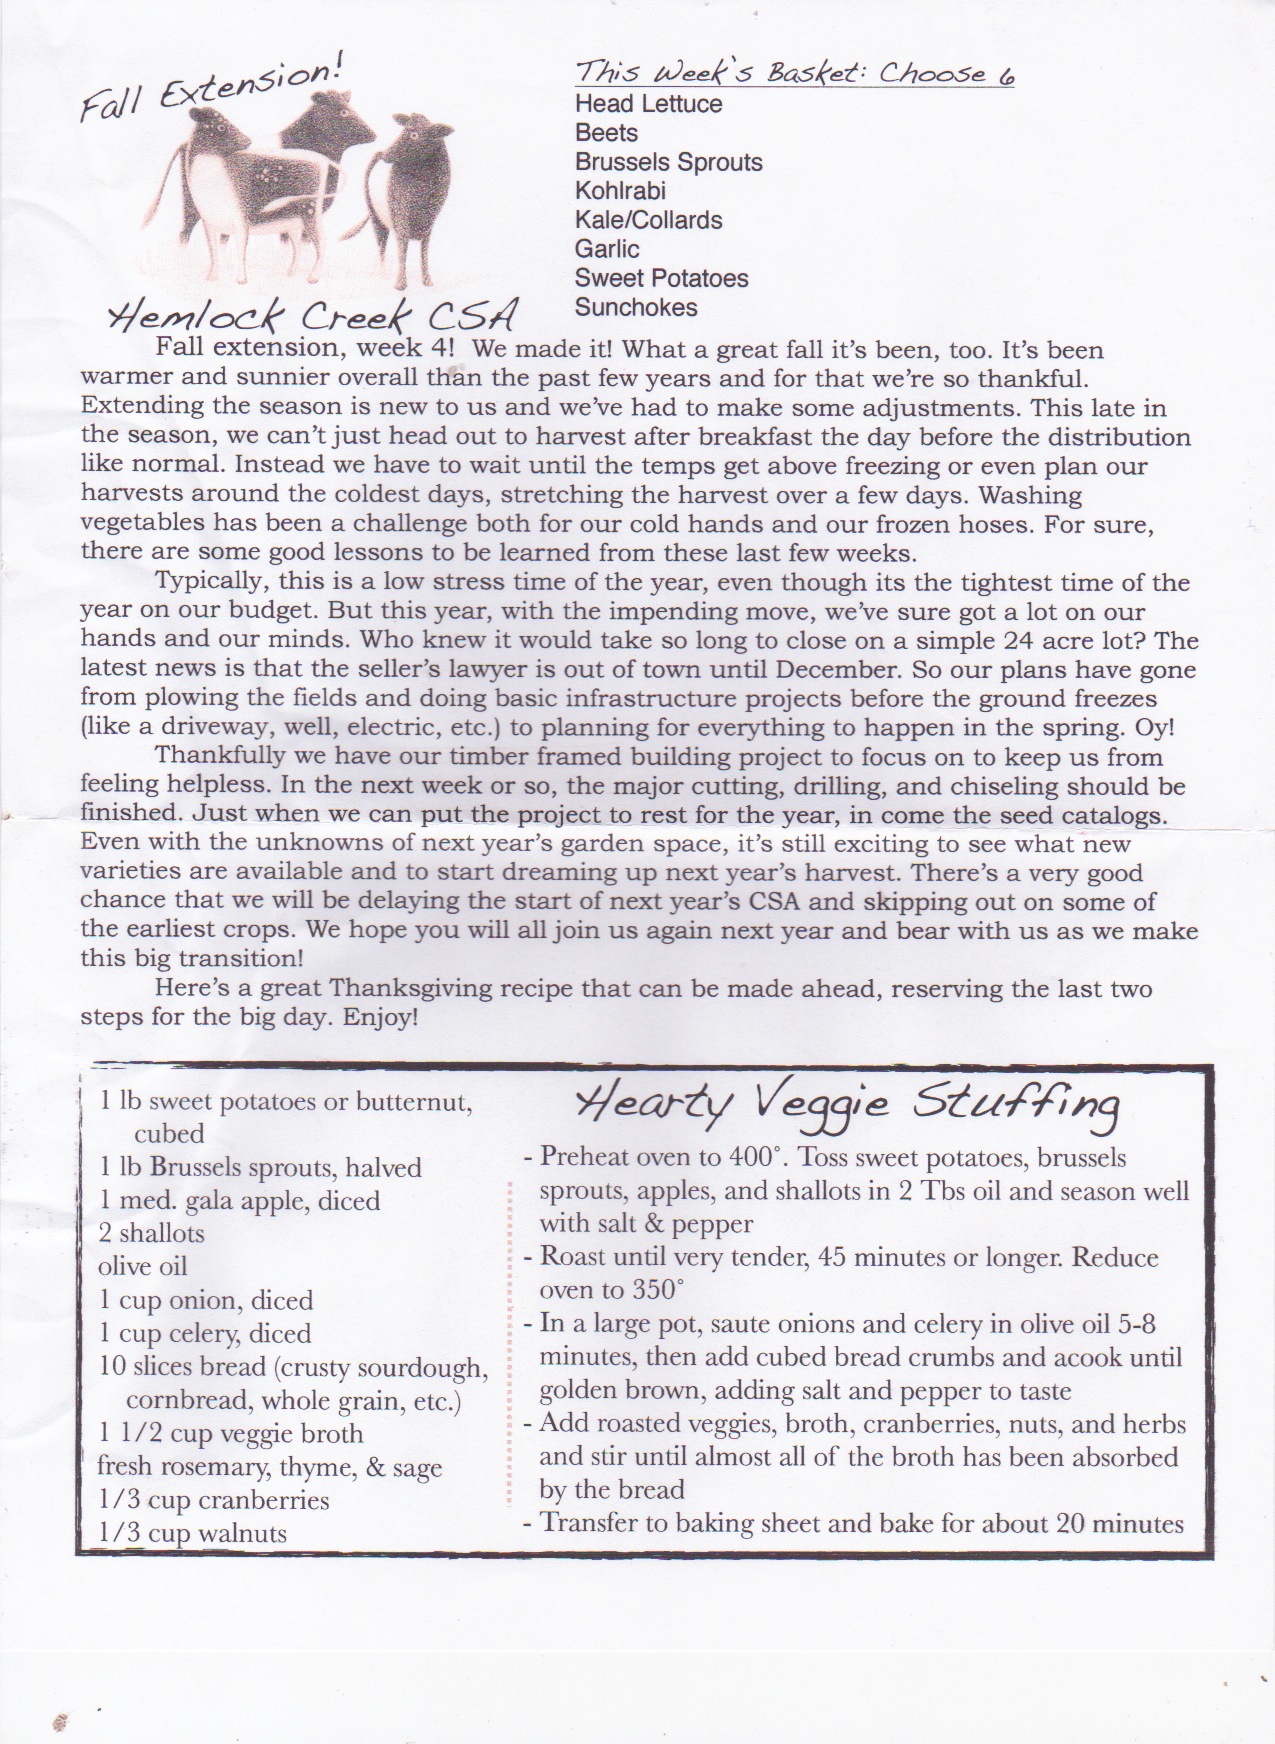 Fall Extension!
Hemlock Creek CSA
This Week's Basket: Choose 6
Head Lettuce
Beets
Brussels Sprouts
Kohlrabi
Kale/Collards
Garlic
Sweet Potatoes
Sunchokes
Fall extension, week 4!  We made it! What a great fall it's been, too. It's been
warmer and sunnier overall than the past few years and for that we're so thankful.
Extending the season is new to us and we've had to make some adjustments. This late in
the season, we can't just head out to harvest after breakfast the day before the distribution
like normal. Instead we have to wait until the temps get above freezing or even plan our
harvests around the coldest days, stretching the harvest over a few days. Washing
vegetables has been a challenge both for our cold hands and our frozen hoses. For sure,
there are some good lessons to be learned from these last few weeks.
Typically, this is a low stress time of the year, even though its the tightest time of the
year on our budget. But this year, with the impending move, we've sure got a lot on our
hands and our minds. Who knew it would take so long to close on a simple 24 acre lot? The
latest news is that the seller's lawyer is out of town until December. So our plans have gone
from plowing the fields and doing basic infrastructure projects before the ground freezes
(like a driveway, well, electric, etc.) to planning for everything to happen in the spring. Oy!
Thankfully we have our timber framed building project to focus on to keep us from
feeling helpless. In the next week or so, the major cutting, drilling, and chiseling should be
finished. Just when we can put the project to rest for the year, in come the seed catalogs.
Even with the unknowns of next year's garden space, it's still exciting to see what new
varieties are available and to start dreaming up next year's harvest. There's a very good
chance that we will be delaying the start of next year's CSA and skipping out on some of
the earliest crops. We hope you will all join us again next year and bear with us as we make
this big transition!
Here's a great Thanksgiving recipe that can be made ahead, reserving the last two
steps for the big day. Enjoy!
1 lb sweet potatoes or butternut,
cubed
1 lb Brussels sprouts, halved
1 med. gala apple, diced
2 shallots
olive oil
1 cup onion, diced
1 cup celery, diced
10 slices bread (crusty sourdough,
cornbread, whole grain, etc.)
1 1/2 cup veggie broth
fresh rosemary, thyme, & sage
1/3 cup cranberries
1/3 cup walnuts
Hearty Veggie Stuffing
- Preheat oven to 400°. Toss sweet potatoes, brussels
sprouts, apples, and shallots in 2 Tbs oil and season well
with salt & pepper
- Roast until very tender, 45 minutes or longer. Reduce
oven to 350°
- In a large pot, saute onions and celery in olive oil 5-8
minutes, then add cubed bread crumbs and acook until
golden brown, adding salt and pepper to taste
- Add roasted veggies, broth, cranberries, nuts, and herbs
and stir until almost all of the broth has been absorbed
by the bread
- Transfer to baking sheet and bake for about 20 minutes